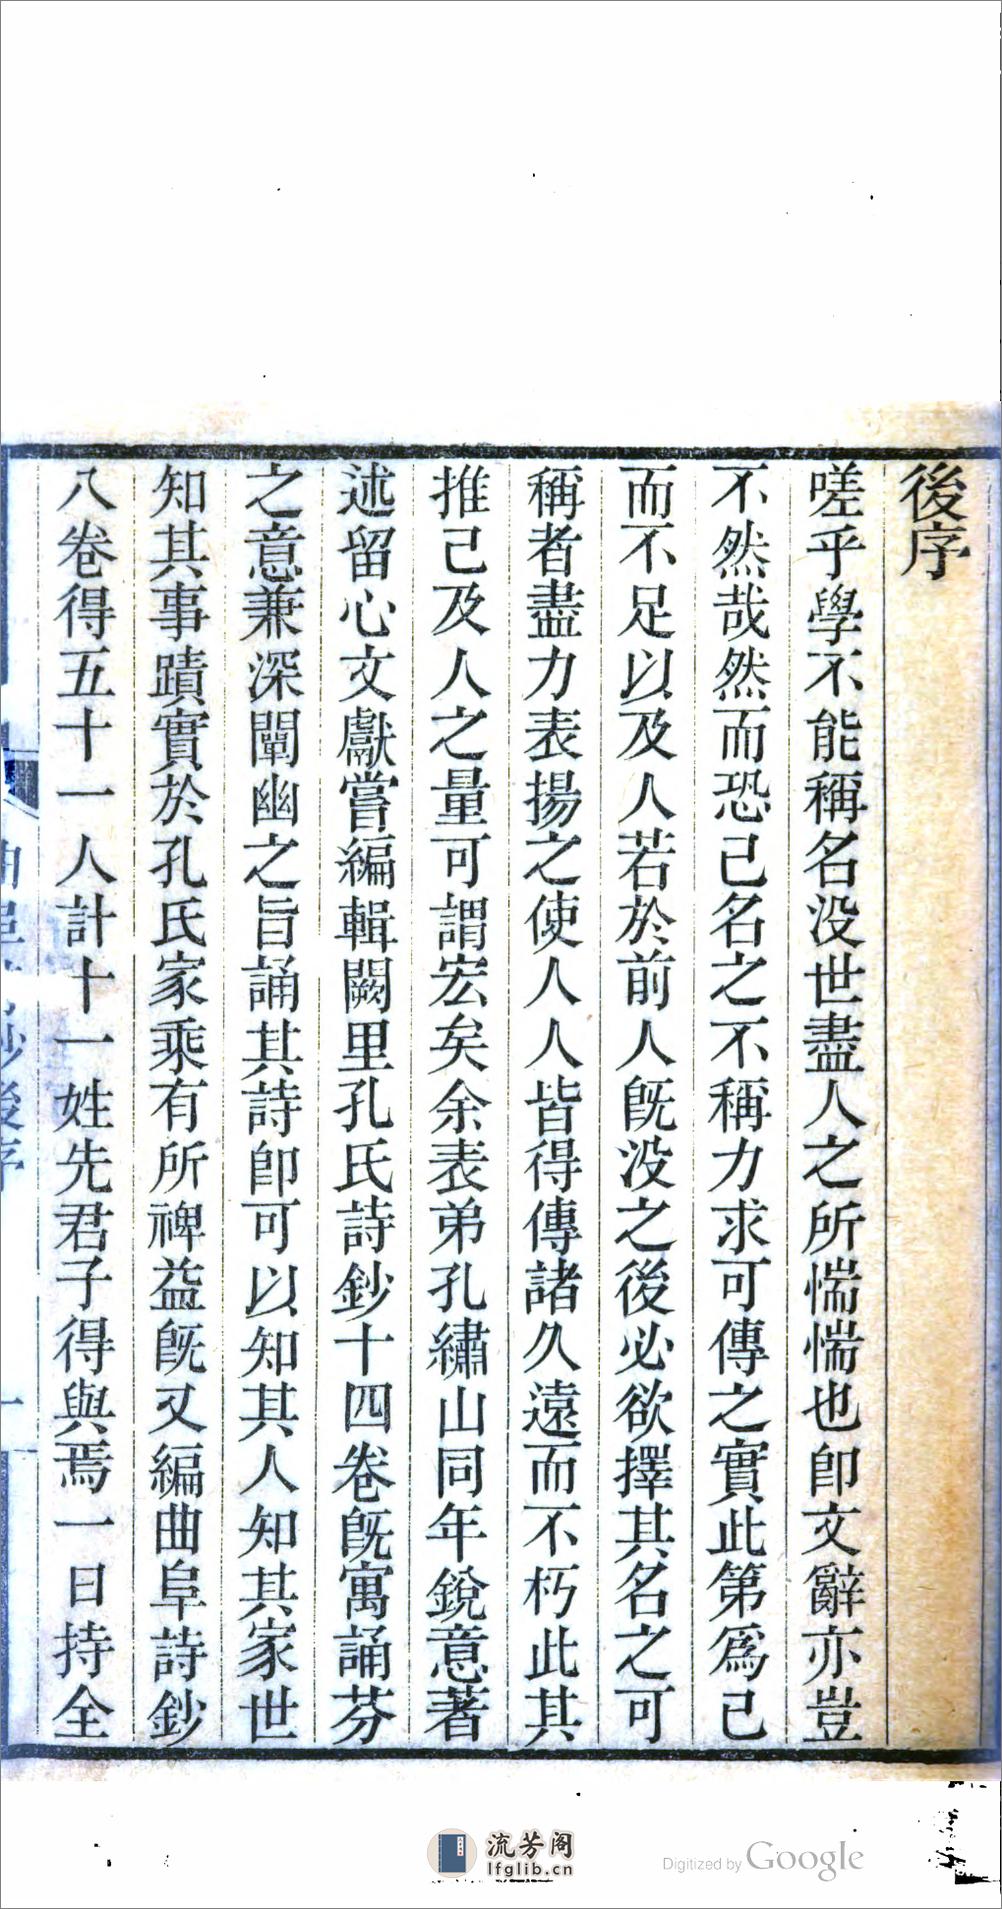 後序
嗟乎學不能稱名没世盡人之所惴惴也卽文辭亦豈
不然哉然而恐己名之不稱力求可傳之實此第爲己
而不足以及人若於前人旣没之後必欲擇其名之可
稱者盡力表揚之使人人皆得傳諸久遠而不朽此其
推己及人之量可謂宏矣余表弟孔繡山同年銳意著
述留心文獻嘗編輯闕里孔氏詩鈔十四卷旣寓誦芬
之意兼深闡幽之旨誦其詩卽可以知其人知其家世
知其事蹟實於孔氏家乘有所裨益旣又編曲阜詩鈔
八卷得五十一人計十一姓先君子得與焉一日持全
鈔後序
一
流芳阁
lfglib.cn
Digitized by Google